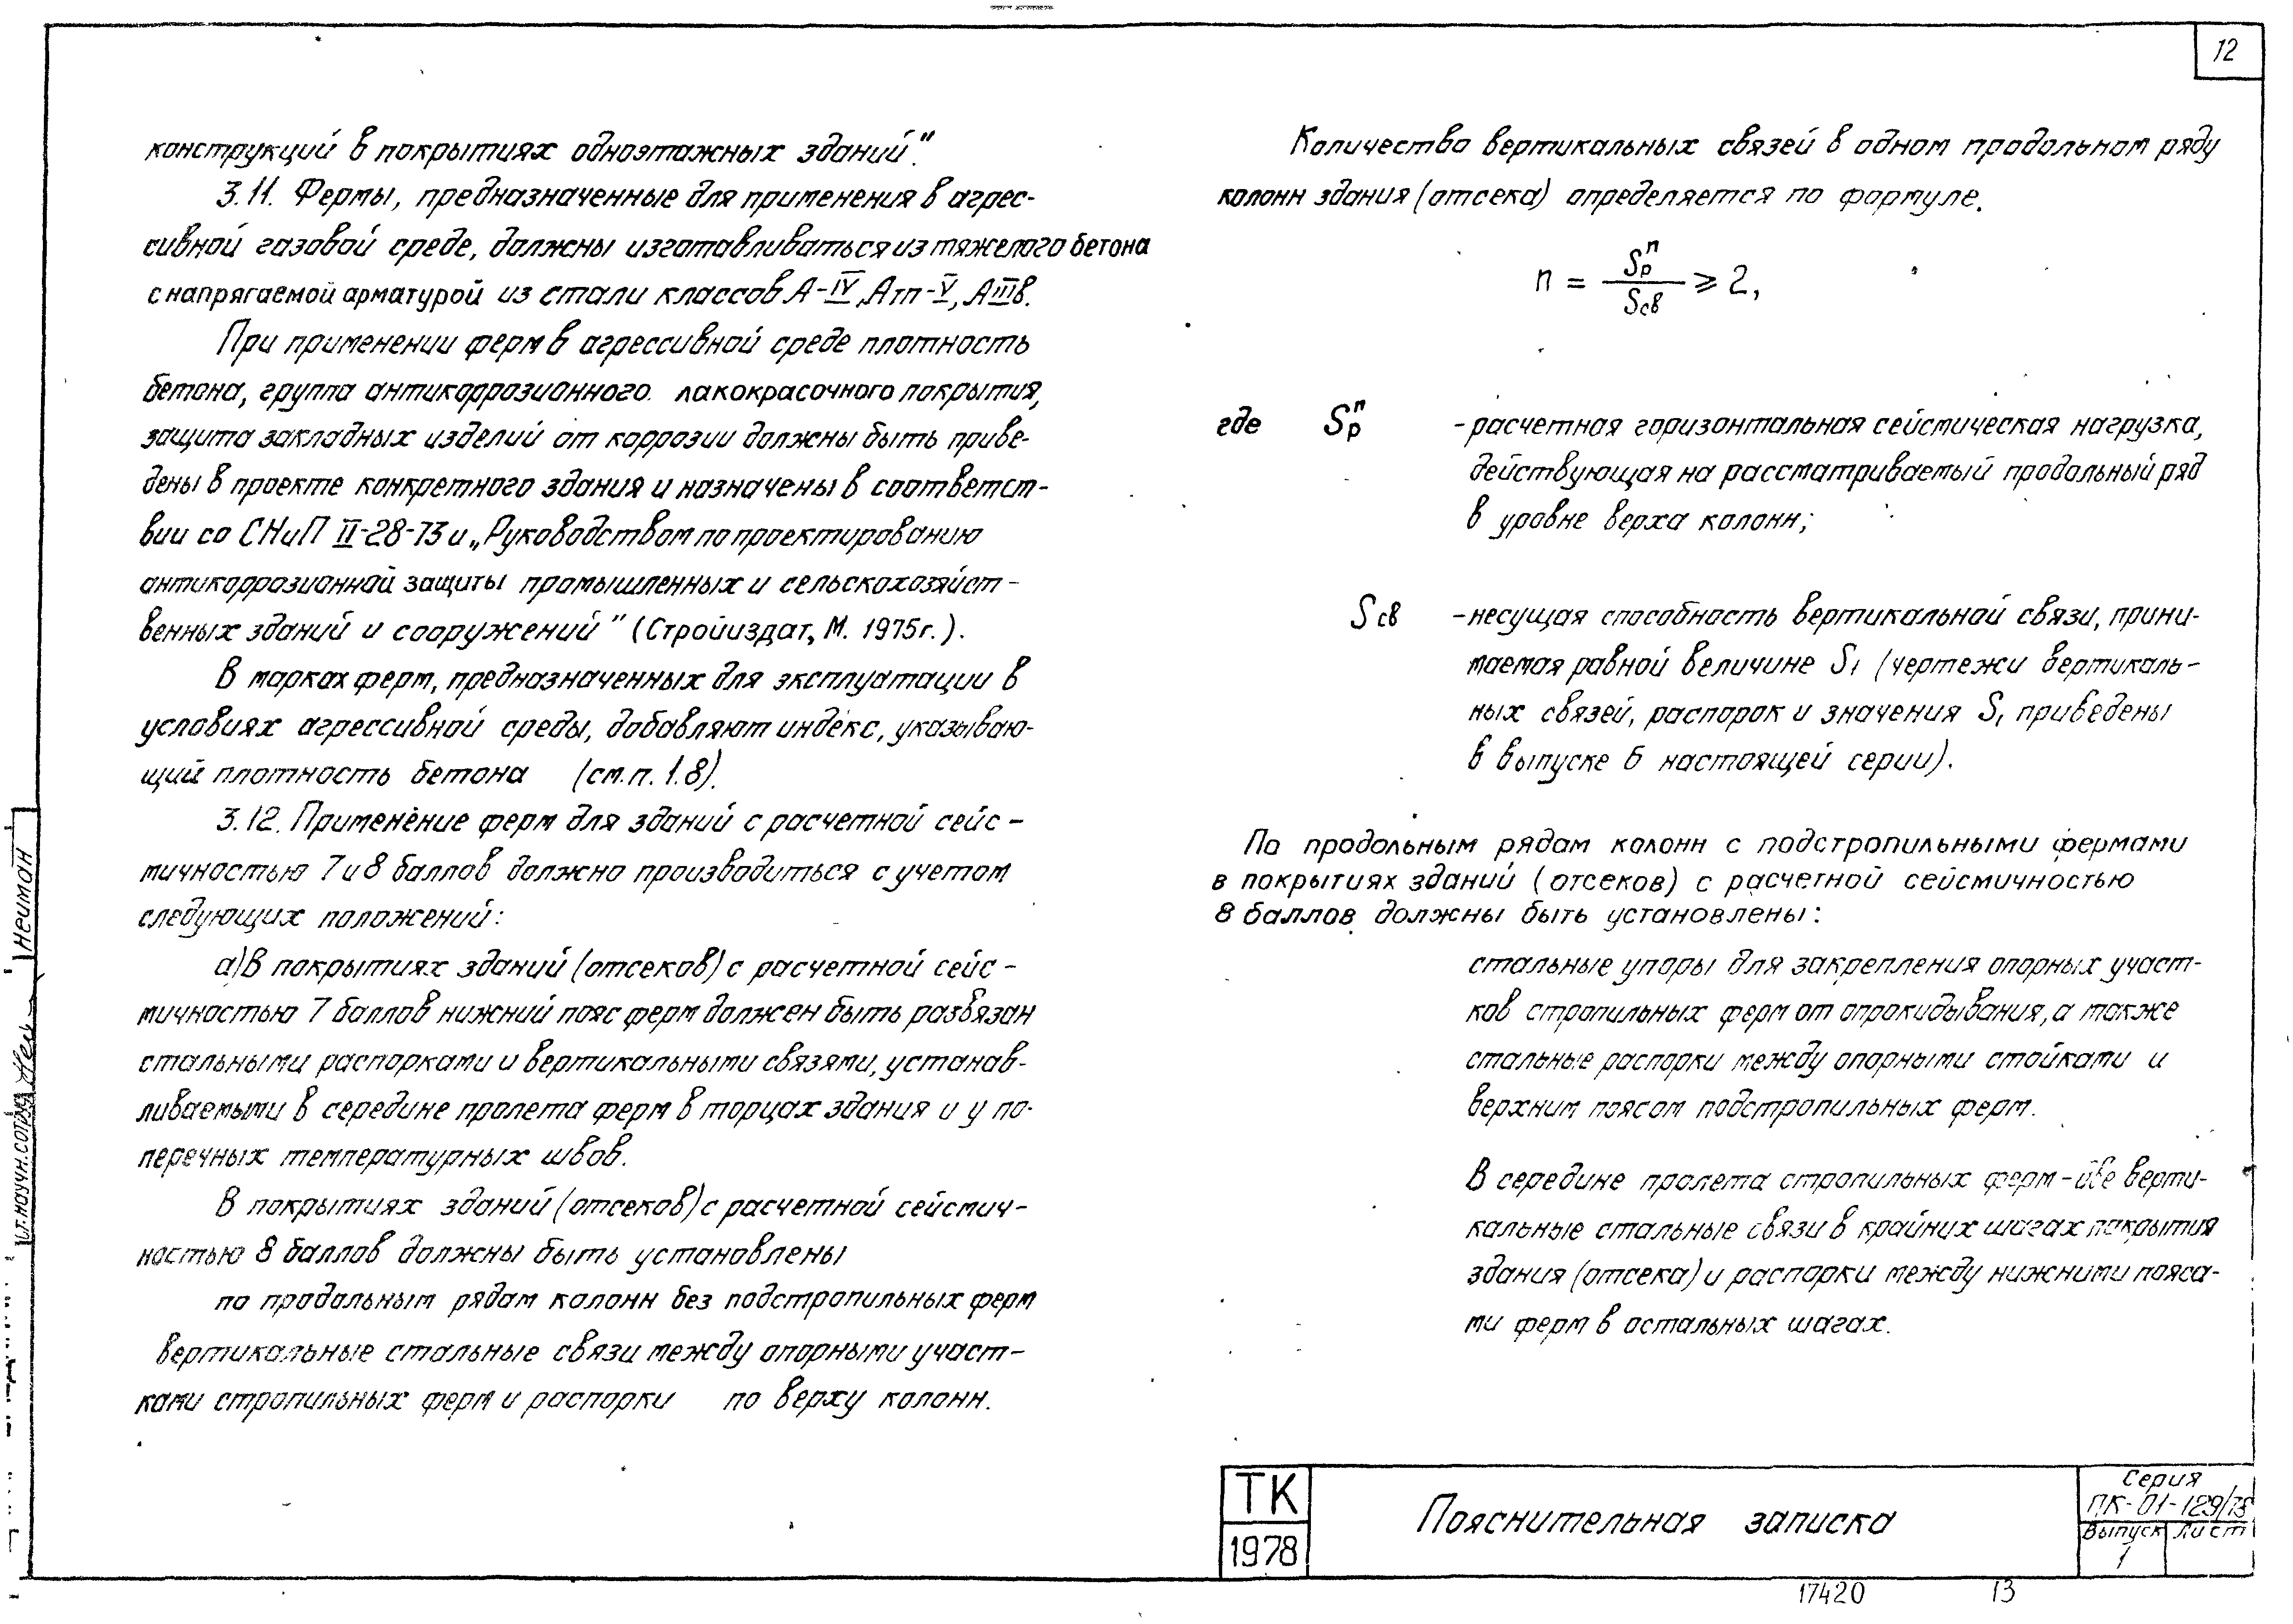 12
конструкций в покрытиях одноэтажных зданий".
3.11. Фермы, предназначенные для применения в агрес-
сивной газовой среде, должны изготавливаться из тяжелого бетона
с напрягаемой арматурой из стали классов А-IV, Атп-V, АIIIв.
При применении ферм в агрессивной среде плотность
бетона, группа антикоррозионного лакокрасочного покрытия,
защита закладных изделий от коррозии должны быть приве-
дены в проекте конкретного здания и назначены в соответст-
вии со СНиП II-28-73 и „Руководством по проектированию
антикоррозионной защиты промышленных и сельскохозяйст-
венных зданий и сооружений" (Стройиздат, М. 1975г.).
В марках ферм, предназначенных для эксплуатации в
условиях агрессивной среды, добавляют индекс, указываю-
щий плотность бетона (см.п. 1.8).
3.12. Применение ферм для зданий с расчетной сейс-
мичностью 7 и 8 баллов должно производиться с учетом
следующих положений:
а) В покрытиях зданий (отсеков) с расчетной сейс-
мичностью 7 баллов нижний пояс ферм должен быть развязан
стальными распорками и вертикальными связями, устанав-
ливаемыми в середине пролета ферм в торцах здания и у по-
перечных температурных швов.
В покрытиях зданий (отсеков) с расчетной сейсмич-
ностью 8 баллов должны быть установлены
по продольным рядам колонн без подстропильных ферм
вертикальные стальные связи между опорными участ-
ками стропильных ферм и распорки по верху колонн.
Количество вертикальных связей в одном продольном ряду
колонн здания (отсека) определяется по формуле.
n = Sрп / Sсв ≥ 2,
где Sрп - расчетная горизонтальная сейсмическая нагрузка,
действующая на рассматриваемый продольный ряд
в уровне верха колонн;
Sсв - несущая способность вертикальной связи, прини-
маемая равной величине S1 (чертежи вертикаль-
ных связей, распорок и значения S1 приведены
в выпуске 6 настоящей серии).
По продольным рядам колонн с подстропильными фермами
в покрытиях зданий (отсеков) с расчетной сейсмичностью
8 баллов должны быть установлены:
стальные упоры для закрепления опорных участ-
ков стропильных ферм от опрокидывания, а также
стальные распорки между опорными стойками и
верхним поясом подстропильных ферм.
В середине пролета стропильных ферм - две верти-
кальные стальные связи в крайних шагах покрытия
здания (отсека) и распорки между нижними пояса-
ми ферм в остальных шагах.
ст. научн. сотр.
Нейман
ТК
1978
Пояснительная записка
Серия
ПК-01-129/78
Выпуск Лист
1
17420 13